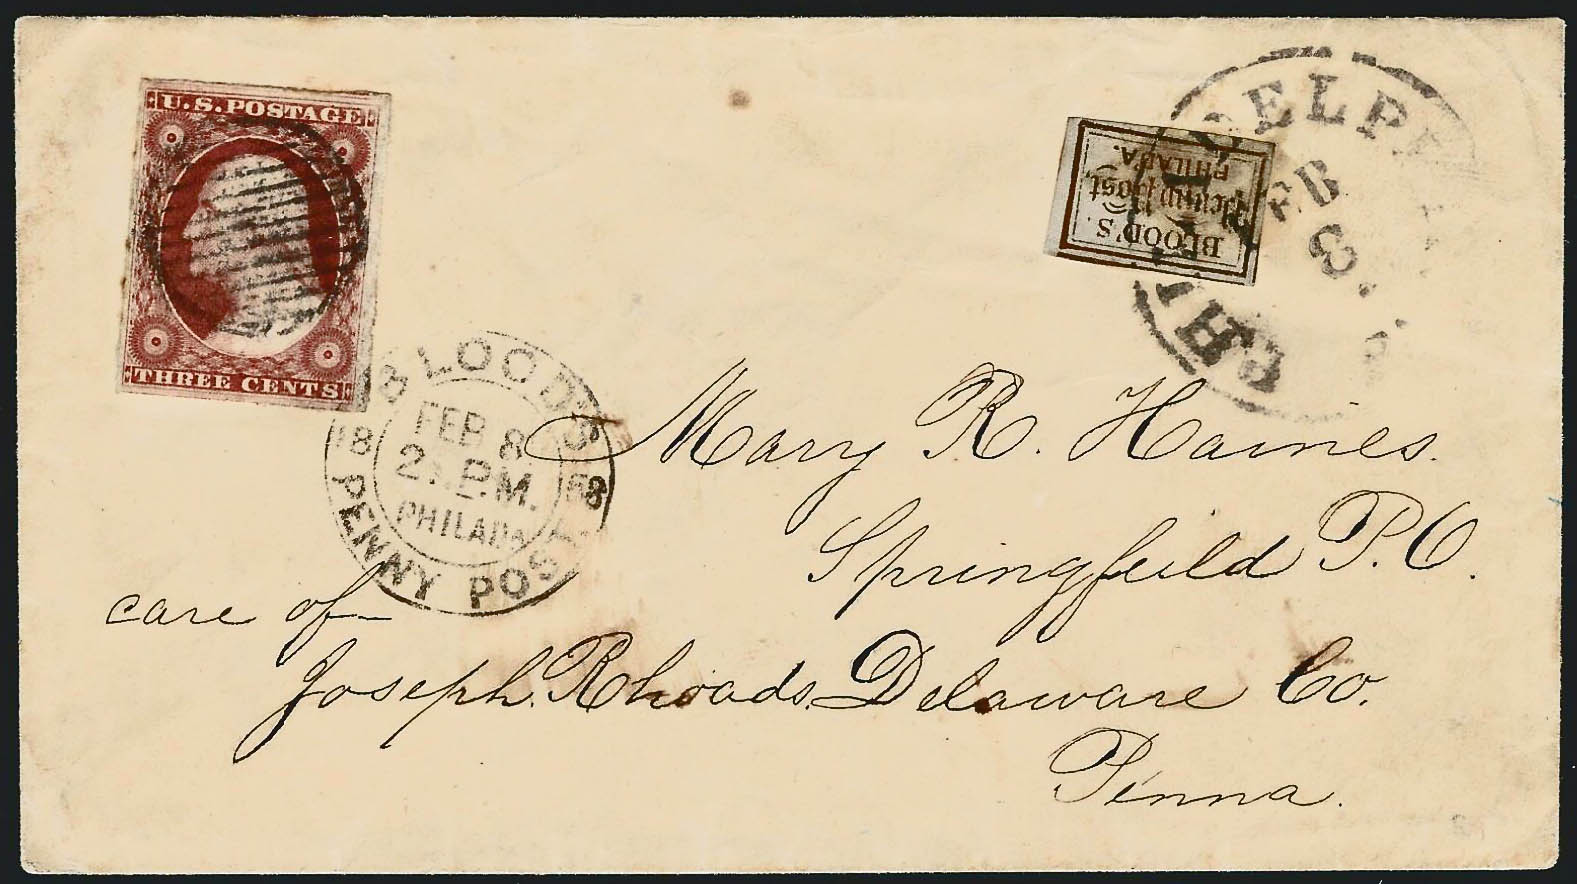 U.S. POSTAGE
THREE CENTS
BLOOD'S
Penny Post,
PHILAD'A.
DELPH
FEB
3
BLOOD'S
18 58
FEB 8
PHILADA
PENNY POST
Mary R. Haines.
Springfeild P.O.
care of
Joseph. Rhoads. Delaware Co.
Penna.